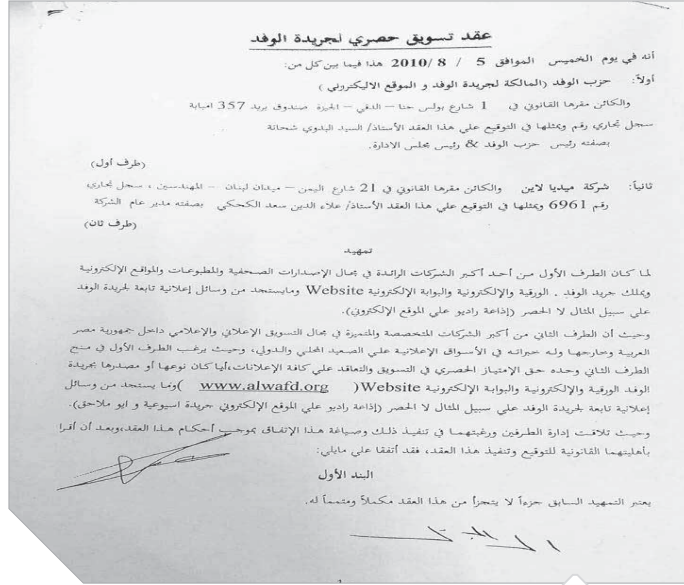 عقد تسويق حصري لجريدة الوفد
أنه في يوم الخميس الموافق 5 / 8 /2010 هذا فيما بين كل من:
أولاً: حزب الوفد (المالكة لجريدة الوفد و الموقع الاليكتروني )
والكائن مقرها القانوني في 1 شارع بولس حنا – الدقي – الجيزة صندوق بريد 357 امبابة
سجل تجاري رقم ويمثلها في التوقيع علي هذا العقد الأستاذ/ السيد البدوي شحاتة
بصفته رئيس حزب الوفد & رئيس مجلس الادارة.
(طرف أول)
ثانياً: شركة ميديا لاين والكائن مقرها القانوني في 21 شارع اليمن – ميدان لبنان – المهندسين ، سجل تجاري
رقم 6961 ويمثلها في التوقيع علي هذا العقد الأستاذ/ علاء الدين سعد الكحكي بصفته مدير عام الشركة
(طرف ثان)
تمهيد
لما كان الطرف الأول من أحد أكبر الشركات الرائدة في مجال الإصدارات الصحفية والمطبوعات والمواقع الإلكترونية
ويملك جريد الوفد . الورقية والإلكترونية والبوابة الإلكترونية Website ومايستجد من وسائل إعلانية تابعة لجريدة الوفد
علي سبيل المثال لا الحصر (إذاعة راديو علي الموقع الإلكتروني).
وحيث أن الطرف الثاني من أكبر الشركات المتخصصة والمتميزة في مجال التسويق الإعلاني والإعلامي داخل جمهورية مصر
العربية وخارجها وله خبراته في الأسواق الإعلانية علي الصعيد المحلي والدولي، وحيث يرغب الطرف الأول في منح
الطرف الثاني وحده حق الإمتياز الحصري في التسويق والتعاقد علي كافة الإعلانات،أيا كان نوعها أو مصدرها بجريدة
الوفد الورقية والإلكترونية والبوابة الإلكترونية Website ( www.alwafd.org )وما يستجد من وسائل
إعلانية تابعة لجريدة الوفد علي سبيل المثال لا الحصر (إذاعة راديو علي الموقع الإلكتروني جريدة اسبوعية و ايو ملاحق).
وحيث تلاقت إدارة الطرفين ورغبتهما في تنفيذ ذلك وصياغة هذا الإتفاق بموجب أحكام هذا العقد،وبعد أن أقرا
بأهليتهما القانونية للتوقيع وتنفيذ هذا العقد، فقد أتفقا علي مايلي:
البند الأول
يعتبر التمهيد السابق جزءاً لا يتجزأ من هذا العقد مكملاً ومتمماً له.